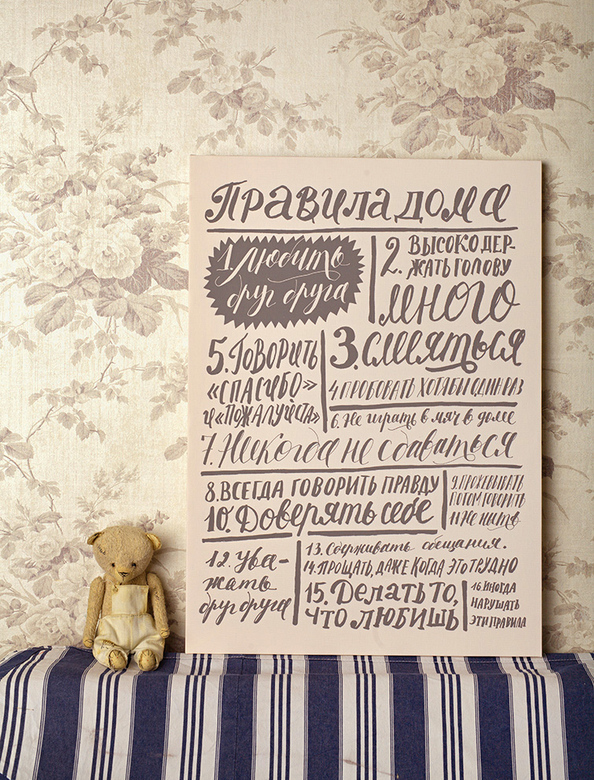 Правила дома
1. Любить
друг друга
2. ВЫСОКО ДЕР-
ЖАТЬ ГОЛОВУ
много
3. смеяться
4. ПРОБОВАТЬ ХОТЯ БЫ ОДИН РАЗ
5. ГОВОРИТЬ
«СПАСИБО»
и «ПОЖАЛУЙСТА»
6. Не играть в мяч в доме
7. Никогда не сдаваться
8. ВСЕГДА ГОВОРИТЬ ПРАВДУ
9.
ПОТОМ ГОВОРИТЬ
10. Доверять себе
11. Не
12. Ува-
жать
друг друга
13. Сдерживать обещания.
14. ПРОЩАТЬ, ДАЖЕ КОГДА ЭТО ТРУДНО
15. Делать то,
ЧТО ЛЮБИШЬ
16. ИНОГДА
НАРУШАТЬ
ЭТИ ПРАВИЛА